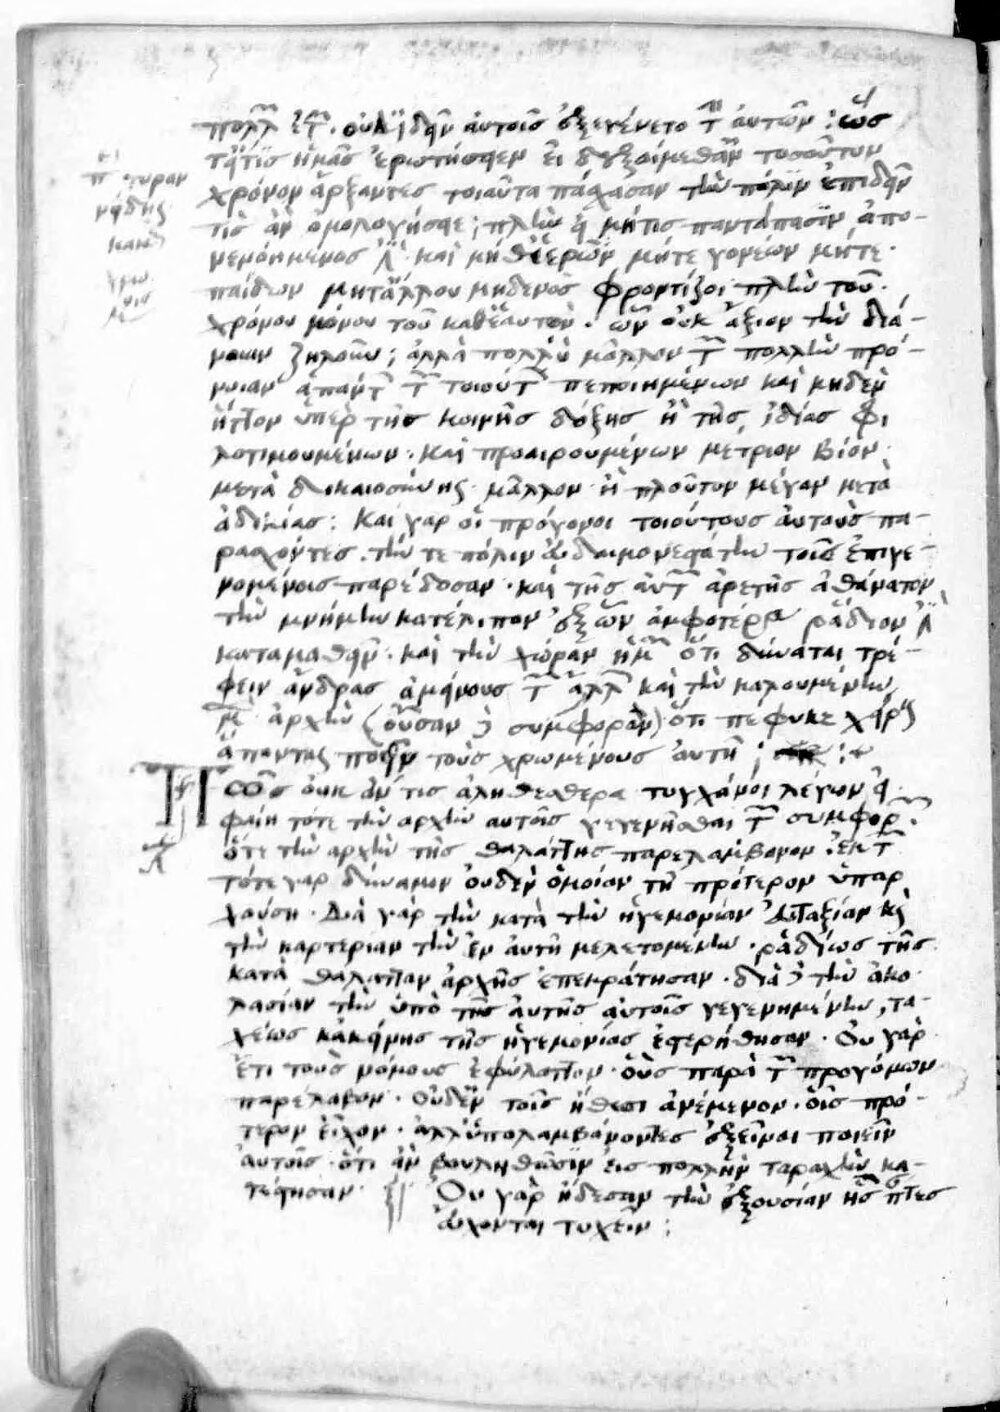 πολλῶν ἐτῶν. οὐκ ἰδεῖν αὐτοῖς ἐξεγένετο τῶν αὑτῶν: ὥς
τ' εἴ τις ἡμᾶς ἐρωτήσειεν εἰ δεξαίμεθ' ἂν τοσοῦτον
χρόνον ἄρξαντες τοιαῦτα πάσχουσαν τὴν πόλιν ἐπιδεῖν
τίς ἂν ὁμολογήσειε; πλὴν εἰ μή τις παντάπασιν ἀπο-
νενοημένος ἐστὶ. καὶ μήθ' ἱερῶν μήτε γονέων μήτε
παίδων μήτ' ἄλλου μηδενὸς φροντίζοι πλὴν τοῦ
χρόνου μόνου τοῦ καθ' ἑαυτόν. ὧν οὐκ ἄξιον τὴν διά-
νοιαν ζηλοῦν; ἀλλὰ πολλὺ μᾶλλον τῶν πολλὴν πρό-
νοιαν ἁπάντων τῶν τοιούτων πεποιημένων καὶ μηδὲν
ἧττον ὑπὲρ τῆς κοινῆς δόξης ἢ τῆς ἰδίας φι
λοτιμουμένων. καὶ προαιρουμένων μέτριον βίον
μετὰ δικαιοσύνης μᾶλλον ἢ πλοῦτον μέγαν μετὰ
ἀδικίας: καὶ γὰρ οἱ πρόγονοι τοιούτους αὑτοὺς πα-
ρασχόντες. τήν τε πόλιν εὐδαιμονεστάτην τοῖς ἐπιγε-
νομένοις παρέδοσαν. καὶ τῆς αὑτῶν ἀρετῆς ἀθάνατον
τὴν μνήμην κατέλιπον ἐξ ὧν ἀμφότερα ῥᾴδιόν ἐστι
καταμαθεῖν. καὶ τὴν χώραν ἡμῶν ὅτι δύναται τρέ-
φειν ἄνδρας ἀμείνους τῶν ἄλλων καὶ τὴν καλουμένην
μὲν ἀρχὴν (οὖσαν δὲ συμφορὰν) ὅτι πέφυκε χείρους
ἅπαντας ποιεῖν τοὺς χρωμένους αὐτῇ;
Πῶς οὐκ ἄν τις ἀληθέστερα τυγχάνοι λέγων εἰ
φαίη τότε τὴν ἀρχὴν αὐτοῖς γεγενῆσθαι τῶν συμφορῶν.
ὅτε τὴν ἀρχὴν τῆς θαλάττης παρελάμβανον. ἐκ τῆς
τότε γὰρ δύναμιν οὐδὲν ὁμοίαν τῇ πρότερον ὑπαρ
χούσῃ. Διὰ γὰρ τὴν κατὰ τὴν ἡγεμονίαν εὐταξίαν καὶ
τὴν καρτερίαν τὴν ἐν αὐτῇ μελετομένην. ῥᾳδίως τῆς
κατὰ θάλατταν ἀρχῆς ἐπεκράτησαν. διὰ δὲ τὴν ἀκο
λασίαν τὴν ὑπὸ τῆς αὐτῆς αὐτοῖς γεγενημένην, τα-
χέως κἀκείνης τῆς ἡγεμονίας ἐστερήθησαν. Οὐ γὰρ
ἔτι τοὺς νόμους ἐφύλαττον. οὓς παρὰ τῶν προγόνων
παρέλαβον. Οὐδὲν τοῖς ἤθεσι ἀνέμενον. οἷς πρό-
τερον εἶχον. ἀλλ' ὑπολαμβάνοντες ἐξεῖναι ποιεῖν
αὐτοῖς. ὅτι ἂν βουληθῶσιν εἰς πολλὴν ταραχὴν κα-
τέστησαν. Οὐ γὰρ ᾔδεσαν τὴν ἐξουσίαν ἧς πάντες
εὔχονται τυχεῖν;